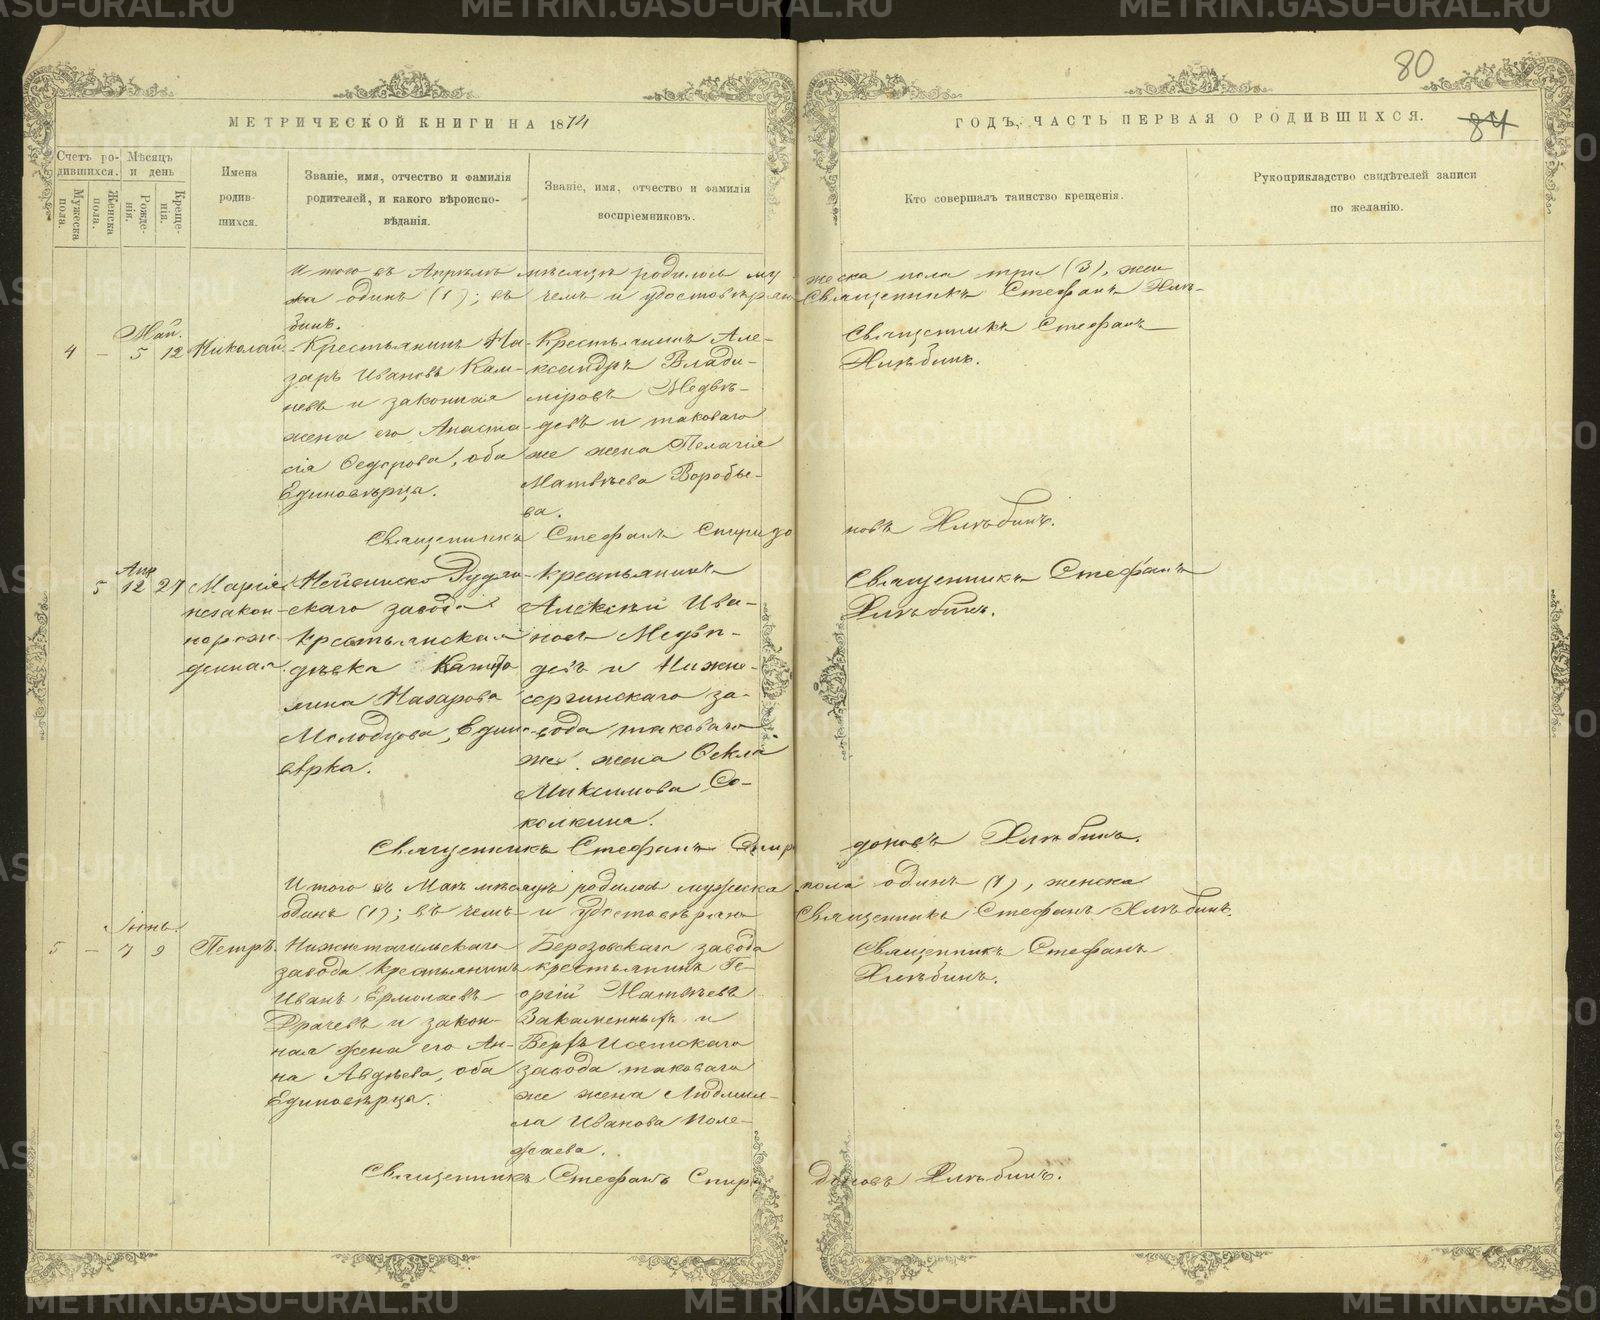 80
МЕТРИЧЕСКОЙ КНИГИ НА 1874
ГОДЪ, ЧАСТЬ ПЕРВАЯ О РОДИВШИХСЯ.
84
Счетъ ро-
дившихся.
Мужеска пола.
Женска пола.
Мѣсяцъ
и день
Рожде-
нія.
Креще-
нія.
Имена
родив-
шихся.
Званіе, имя, отчество и фамилія
родителей, и какого вѣроиспо-
вѣданія.
Званіе, имя, отчество и фамилія
воспріемниковъ.
Кто совершалъ таинство крещенія.
Рукоприкладство свидѣтелей записи
по желанію.
Итого въ Апрѣлѣ мѣсяцѣ родилось му
жеска пола три (3), жен
ка одинъ (1); въ чемъ и удостовѣряю
Священникъ Стефанъ Хлѣ-
бинъ.
Май.
4 – 5 12 Николай
Крестьянинъ На-
заръ Ивановъ Кам-
невъ и законная
жена его Анаста-
сія Федорова, оба
Единовѣрца.
Крестьянинъ Але-
ксандръ Влади-
міровъ Медвѣ-
девъ и таковаго
же жена Пелагія
Матвѣева Воробье-
ва.
Священникъ Стефанъ
Хлѣбинъ.
Священникъ Стефанъ Спиридо
новъ Хлѣбинъ.
Апр
5 12 27 Марія
незакон-
норож-
денная.
Нейвинско Рудян-
скаго завода
крестьянская
дѣвка Капито
лина Назарова
Молодцова, Едино-
вѣрка.
Крестьянинъ
Алексѣй Ива-
новъ Медвѣ-
девъ и Нижне-
сергинскаго за-
вода таковаго
же жена Фекла
Максимова Со-
колкина.
Священникъ Стефанъ
Хлѣбинъ.
Священникъ Стефанъ Спири
доновъ Хлѣбинъ.
Итого въ Маѣ мѣсяцѣ родилось мужеска
пола одинъ (1), женска
одинъ (1); въ чемъ и удостовѣряю
Священникъ Стефанъ Хлѣбинъ.
Іюнь.
5 – 7 9 Петръ.
Нижнетагильскаго
завода крестьянинъ
Иванъ Ермолаевъ
Драчевъ и закон-
ная жена его Ан-
на Авдѣева, оба
Единовѣрца.
Березовскаго завода
крестьянинъ Ге-
оргій Матвѣевъ
Закаменныхъ и
Верхъ Исетскаго
завода таковаго
же жена Людмил-
ла Иванова Поле-
жаева.
Священникъ Стефанъ
Хлѣбинъ.
Священникъ Стефанъ Спири
доновъ Хлѣбинъ.
METRIKI.GASO-URAL.RU